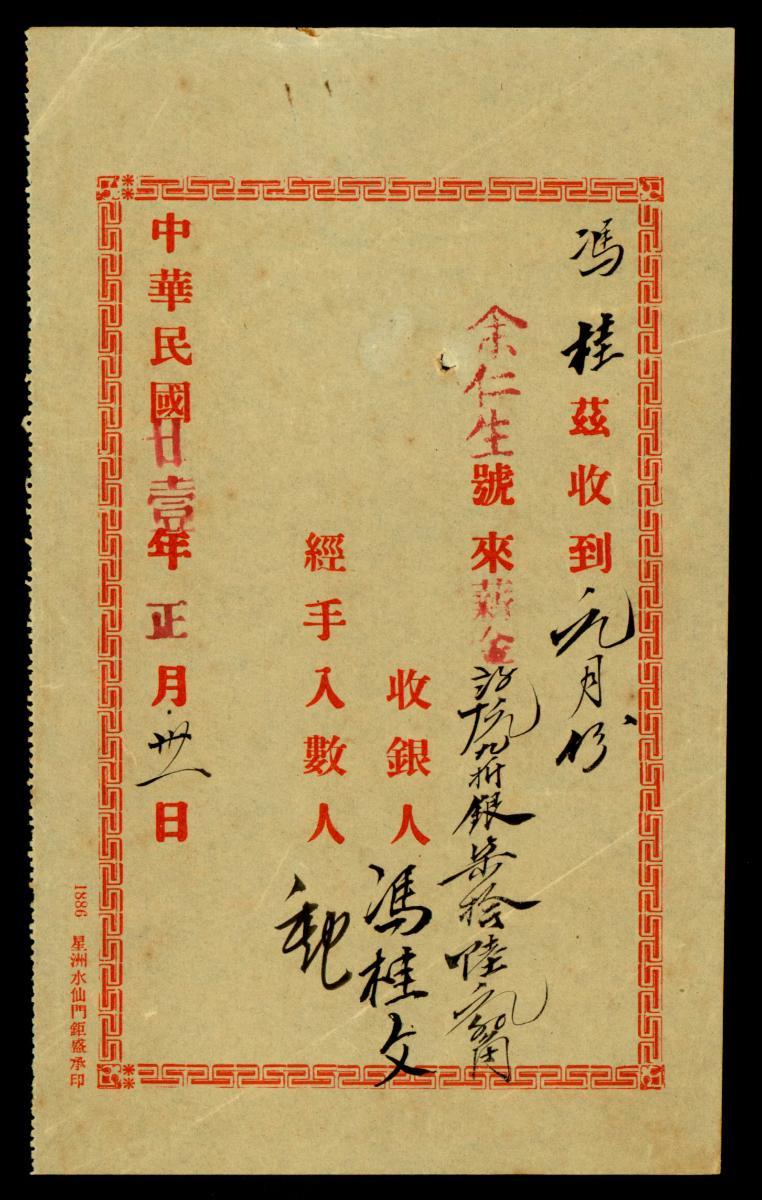 馮桂茲收到元月份
余仁生號來薪金九折銀柒拾陸元
收銀人馮桂文
經手入數人
中華民國廿壹年正月卅一日
1886 星洲水仙門鉅盛承印